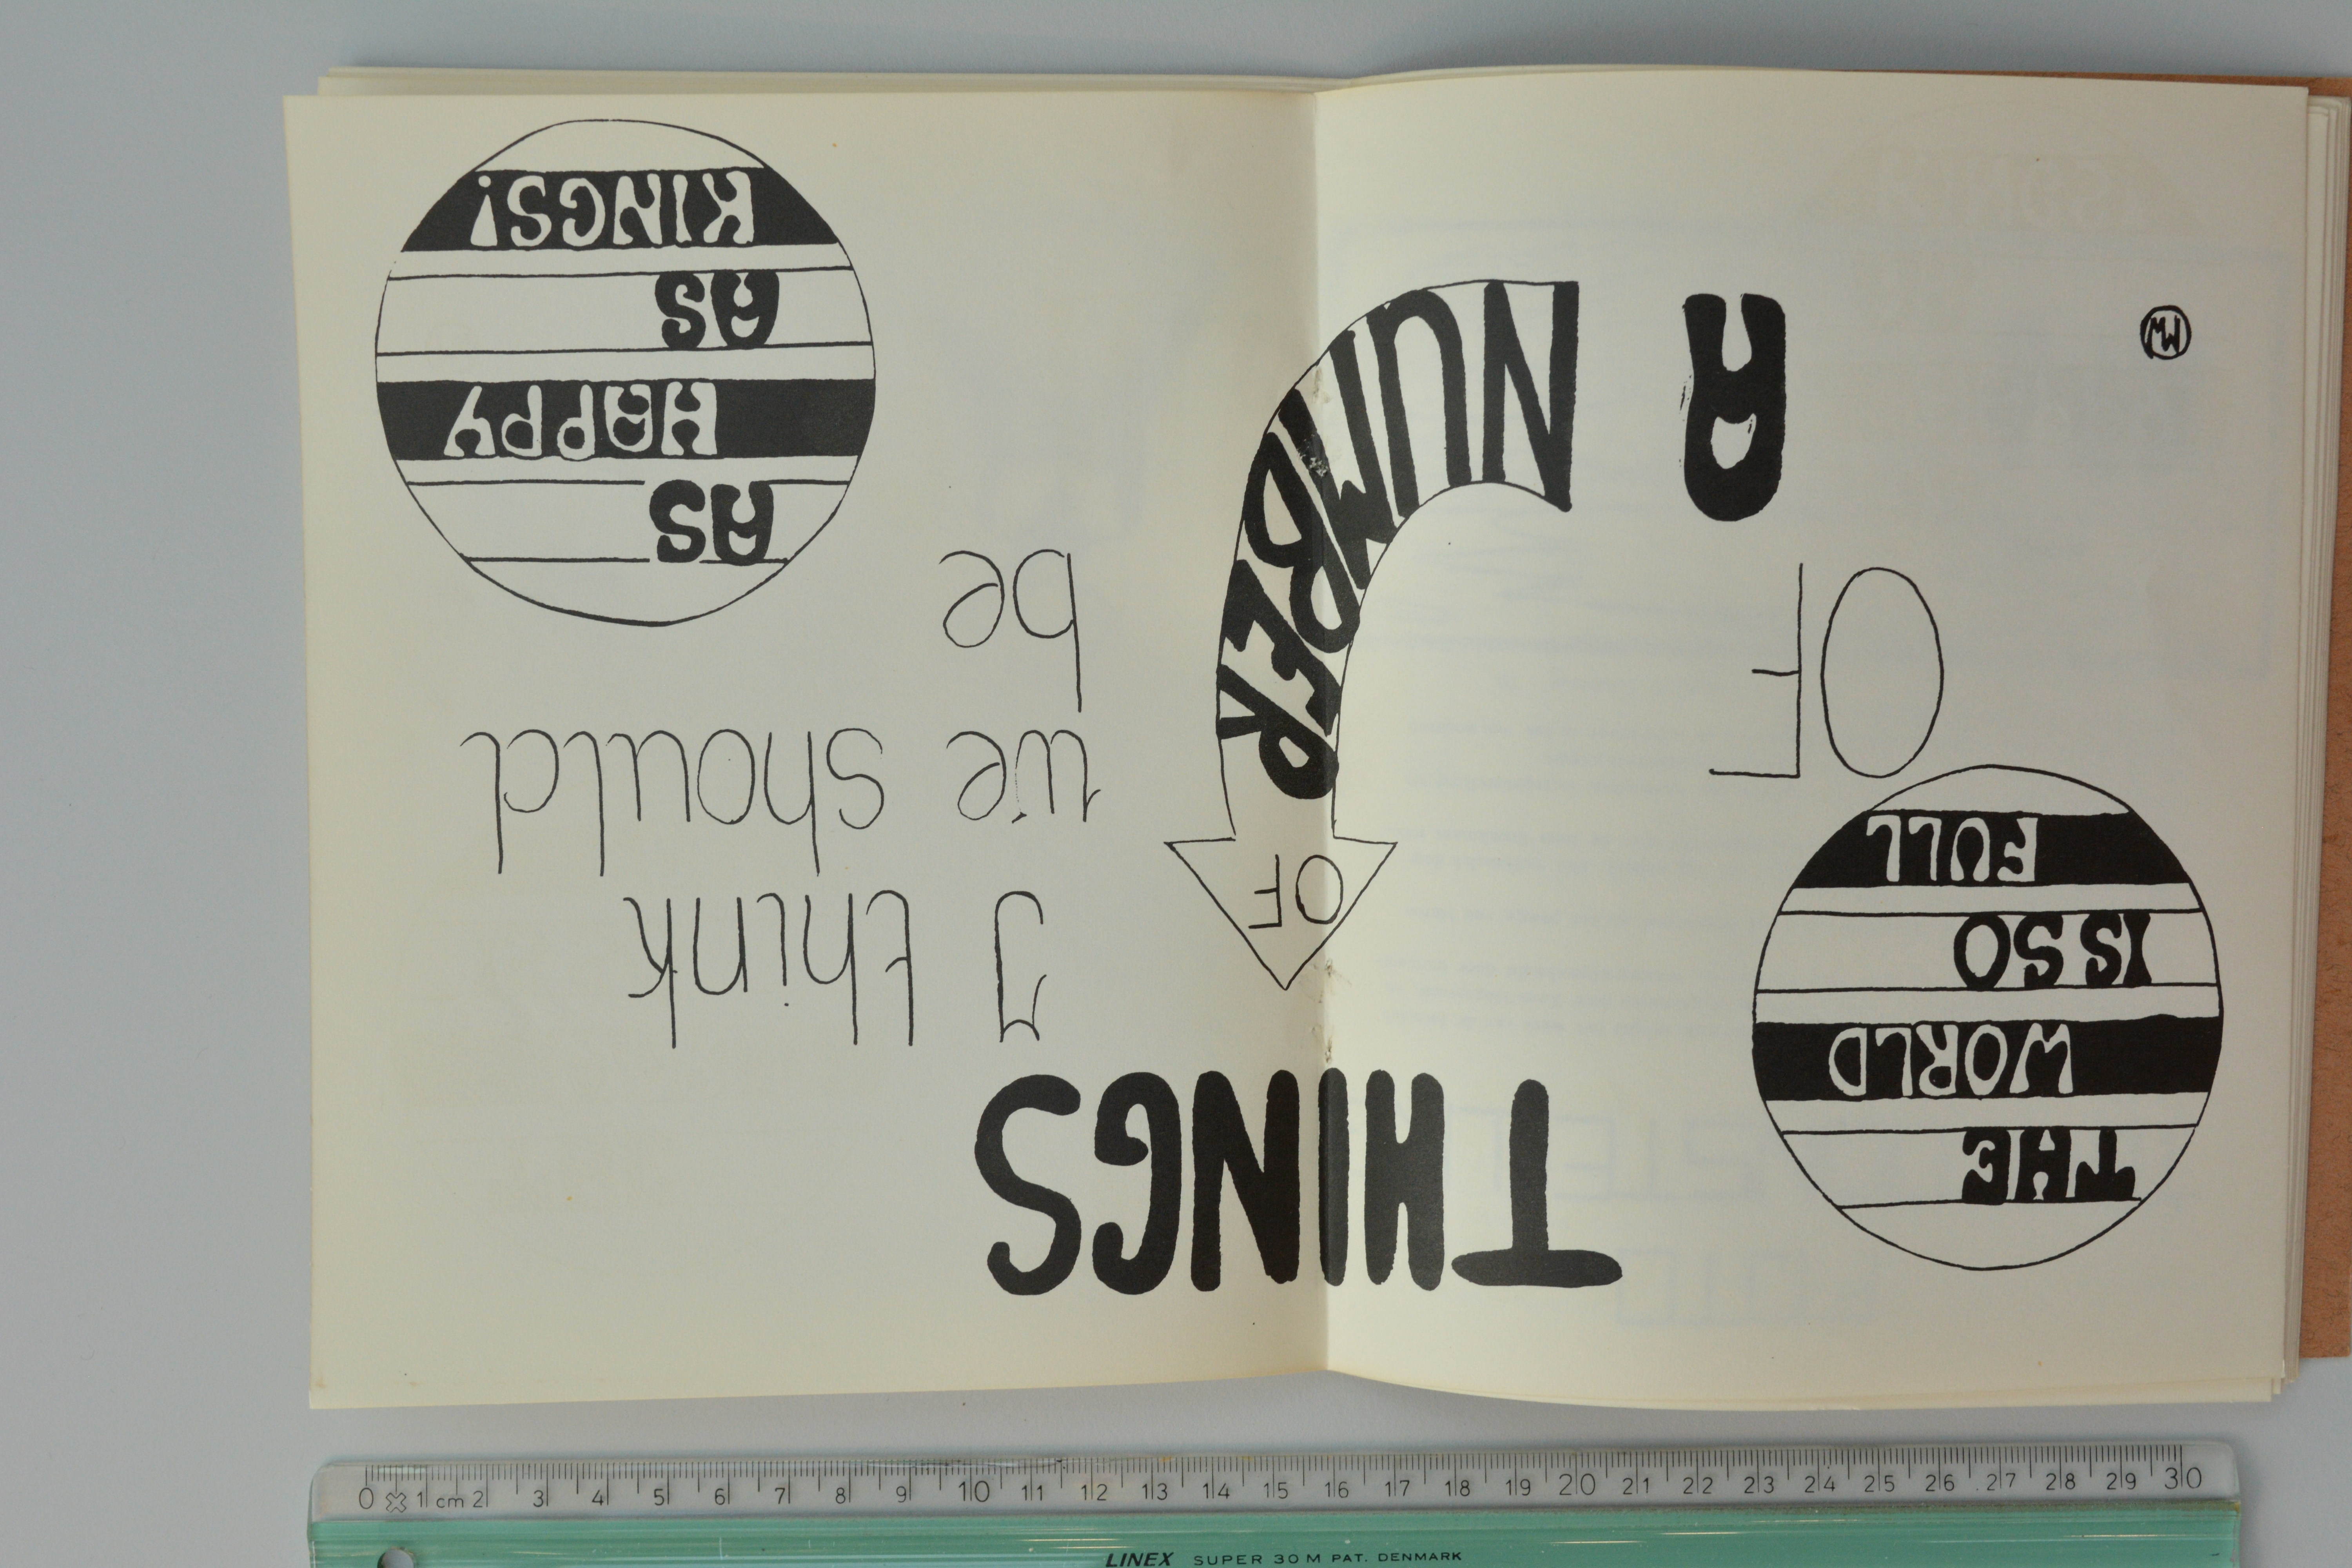 THE
WORLD
IS SO
FULL
OF
A
NUMBER
OF
THINGS
I think
we should
be
AS
HAPPY
AS
KINGS!
MW
0 1 cm 2 3 4 5 6 7 8 9 10 11 12 13 14 15 16 17 18 19 20 21 22 23 24 25 26 27 28 29 30
LINEX SUPER 30 M PAT. DENMARK